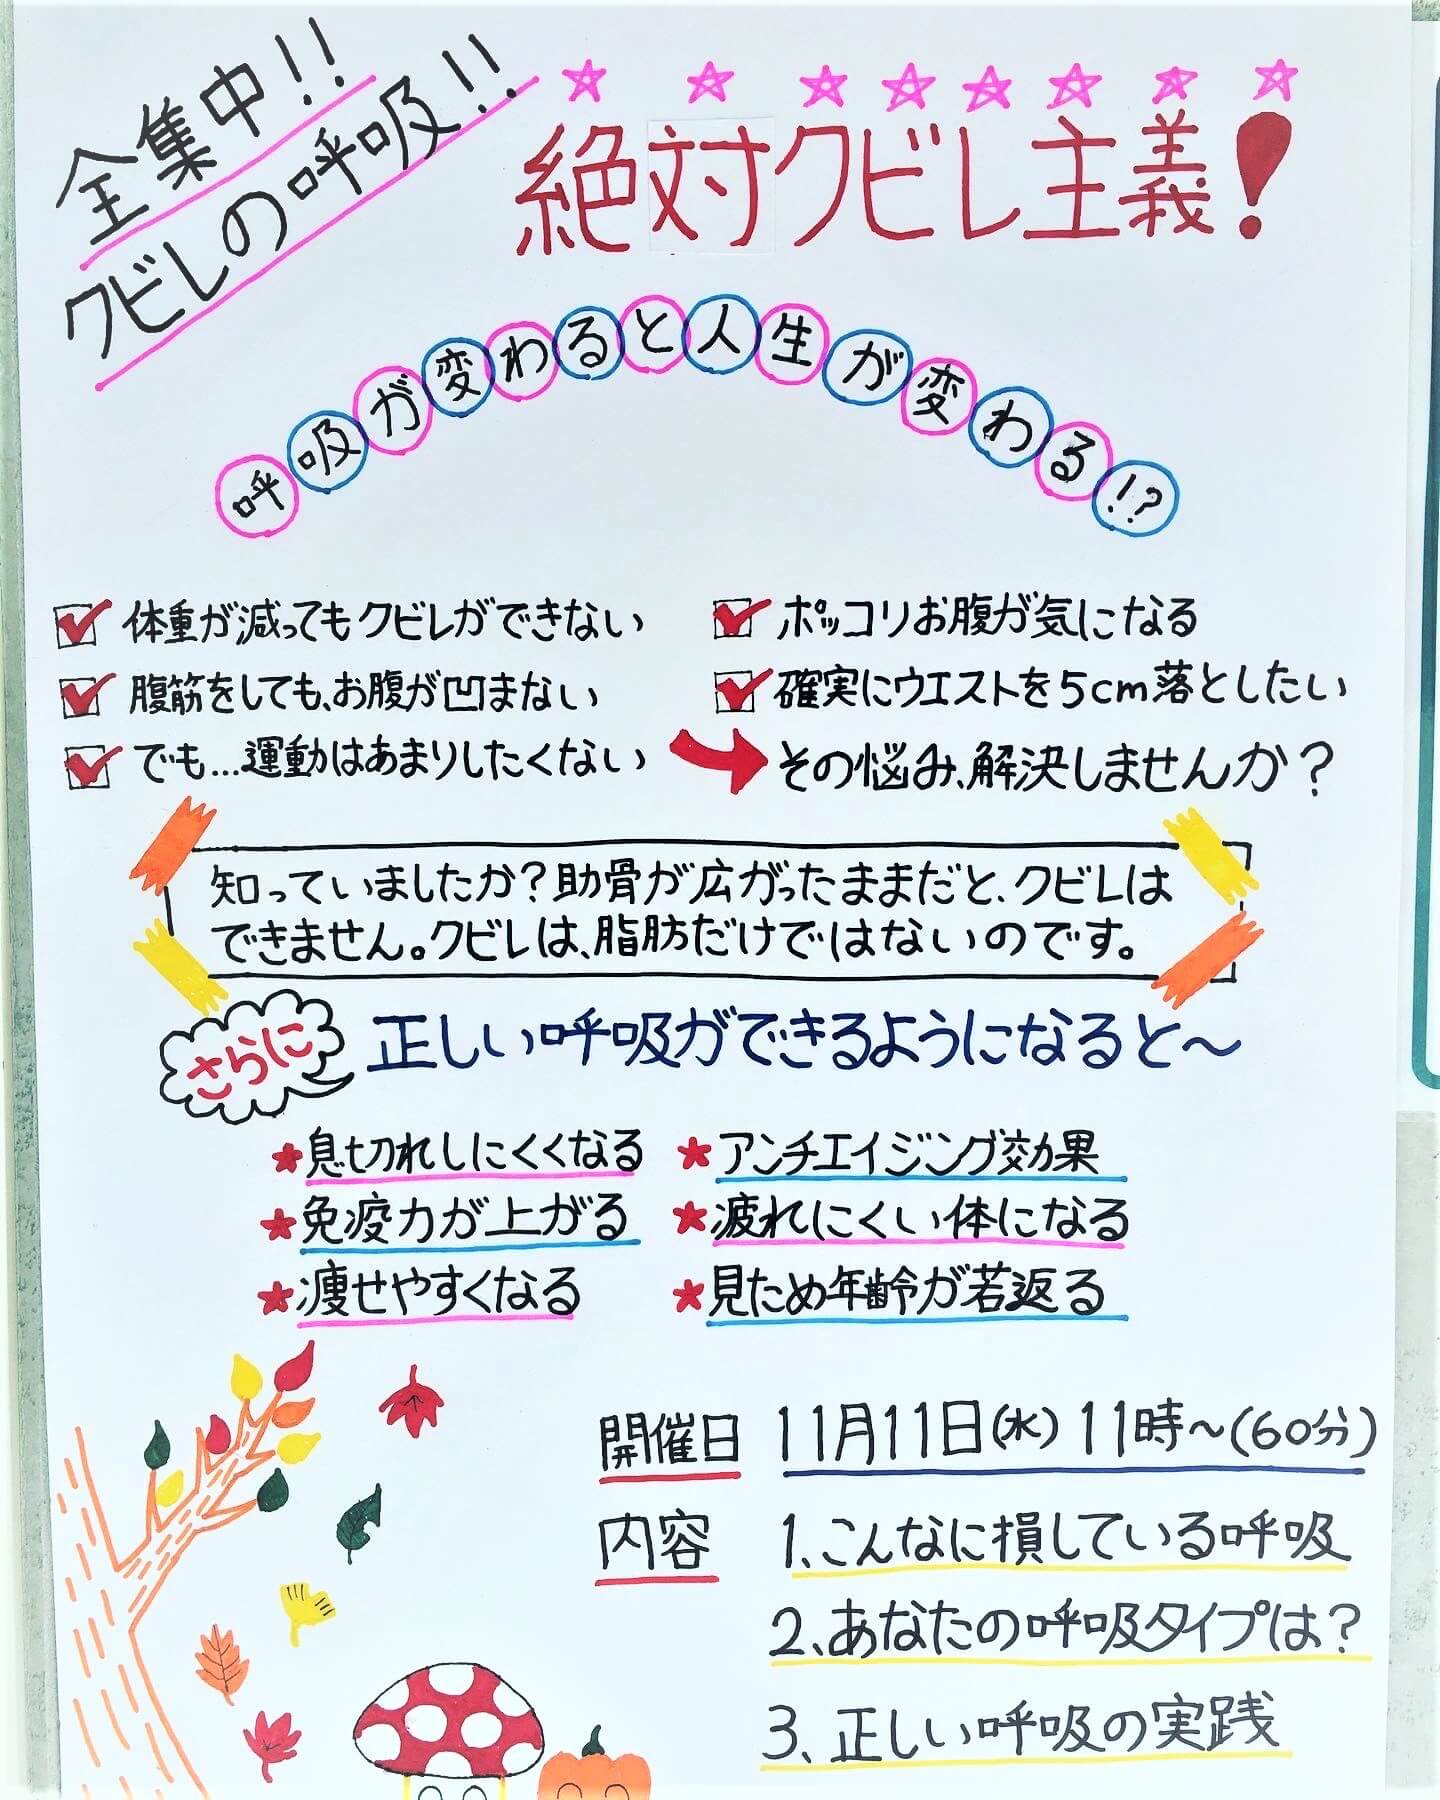 全集中!!
クビレの呼吸!!
絶対クビレ主義!
呼吸が変わると人生が変わる!?
体重が減ってもクビレができない
腹筋をしても、お腹が凹まない
でも...運動はあまりしたくない
ポッコリお腹が気になる
確実にウエストを5cm落としたい
その悩み、解決しませんか?
知っていましたか?肋骨が広がったままだと、クビレは
できません。クビレは、脂肪だけではないのです。
さらに
正しい呼吸ができるようになると〜
息切れしにくくなる
免疫力が上がる
痩せやすくなる
アンチエイジング効果
疲れにくい体になる
見ため年齢が若返る
開催日 11月11日(水) 11時〜(60分)
内容 1、こんなに損している呼吸
2、あなたの呼吸タイプは?
3、正しい呼吸の実践